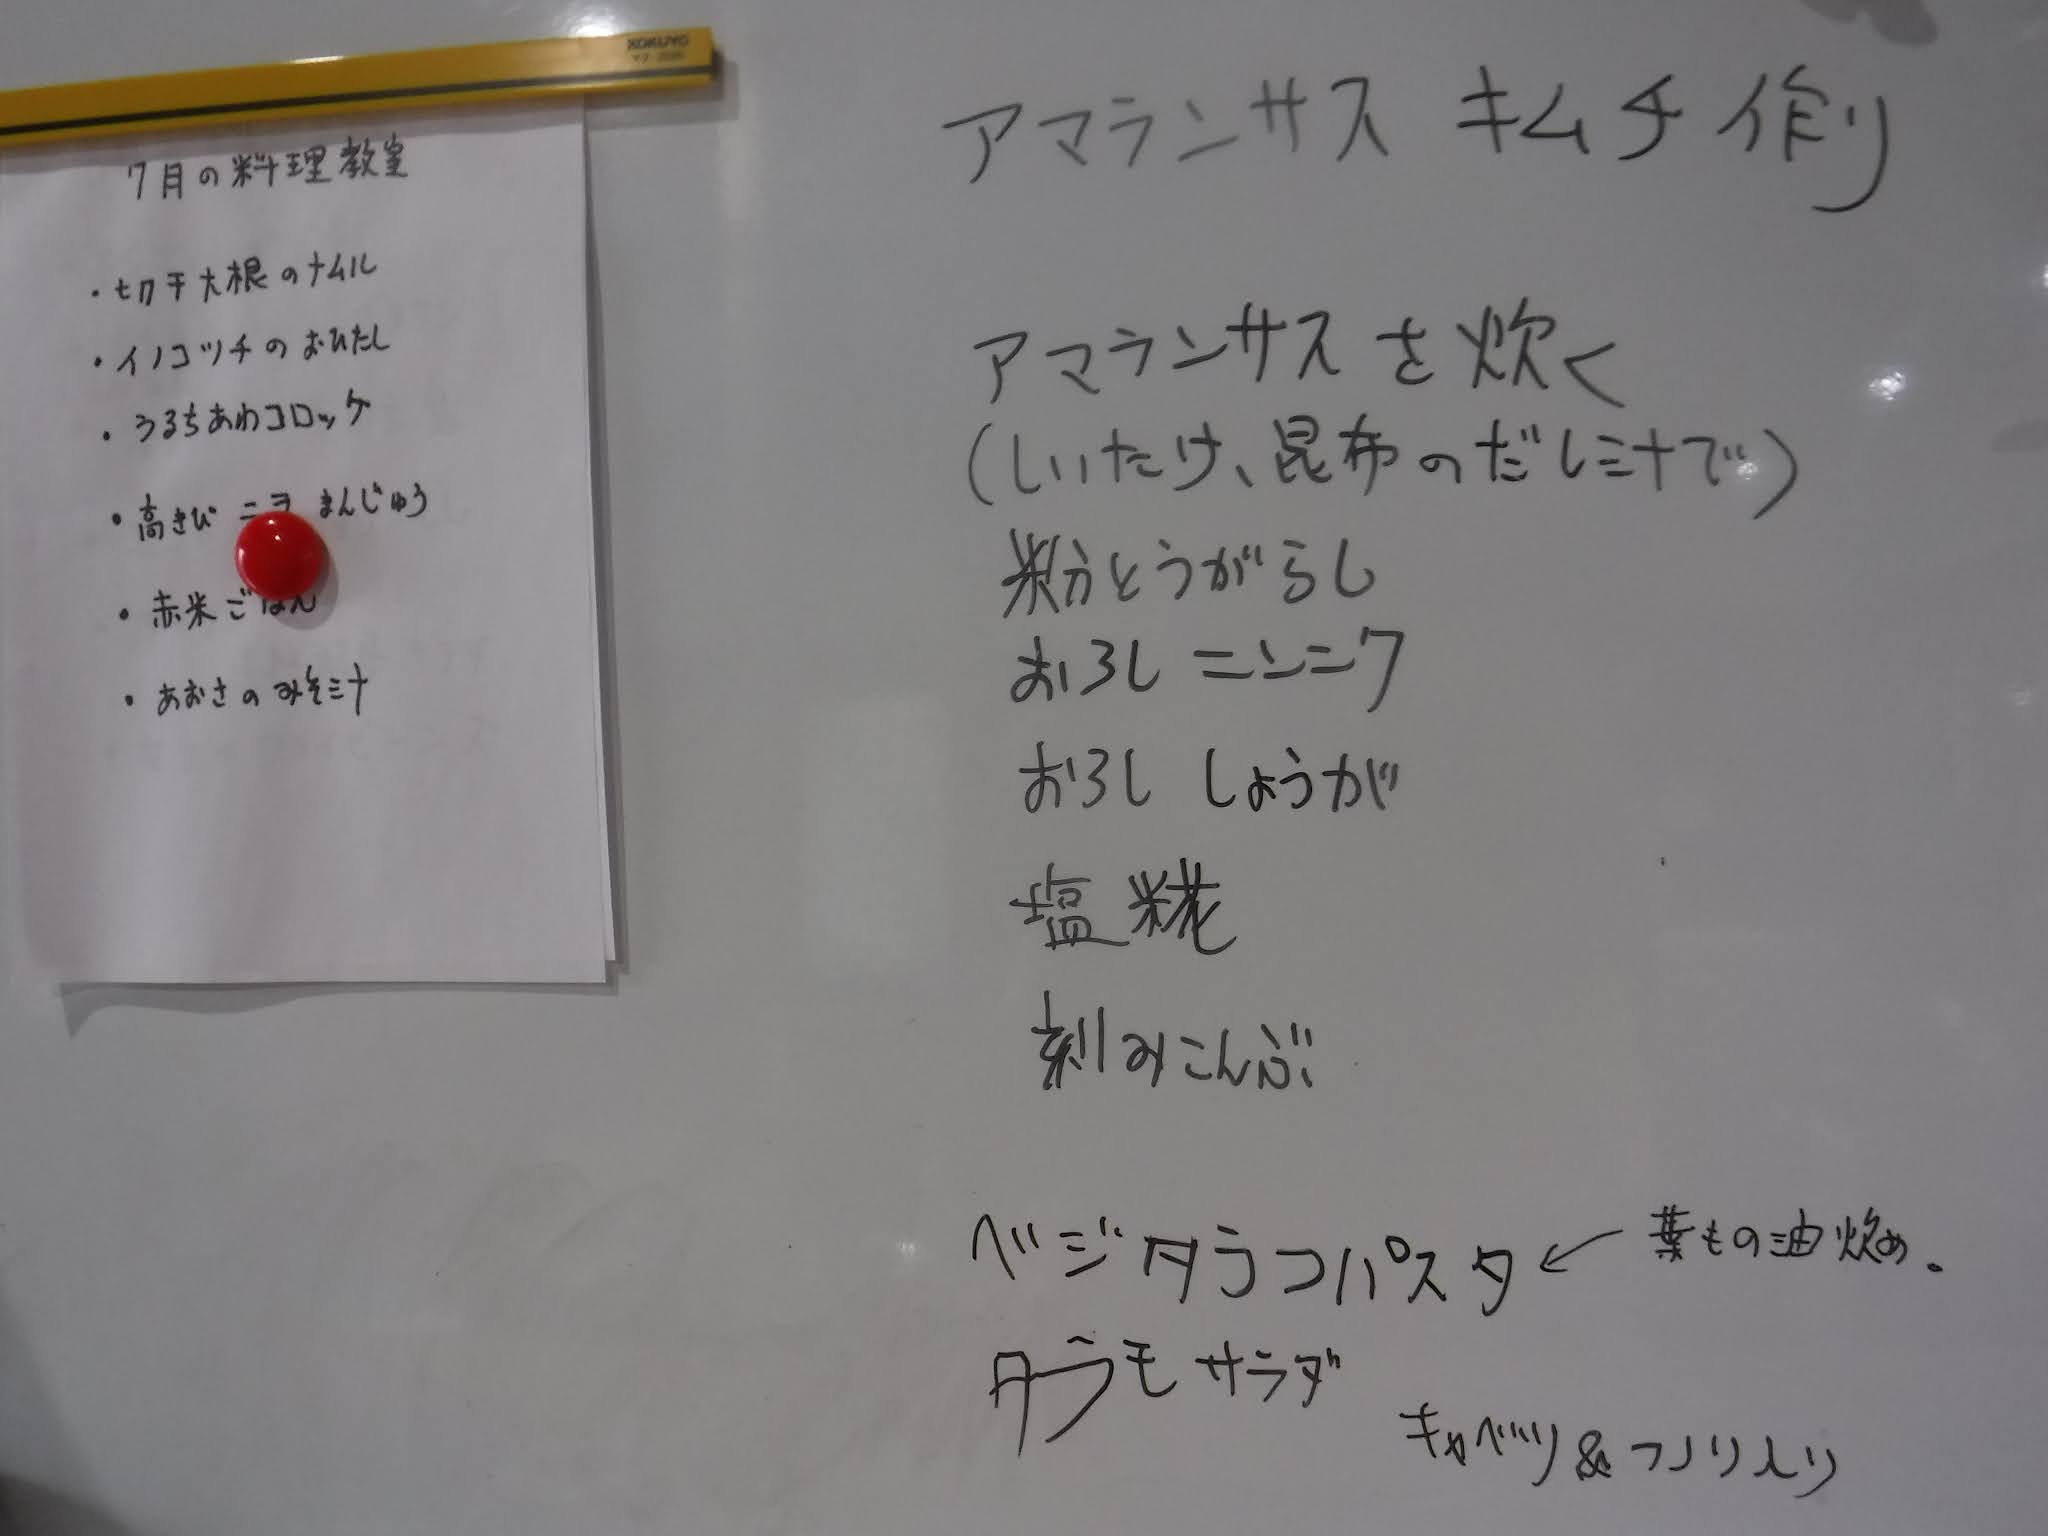 KOKUYO
7月の料理教室
・切干大根のナムル
・イノコヅチのおひたし
・うるちあわコロッケ
・高きびニラまんじゅう
・赤米ごはん
・あおさのみそ汁
アマランサス キムチ作り
アマランサスを炊く
(しいたけ、昆布のだし汁で)
粉とうがらし
おろし ニンニク
おろし しょうが
塩糀
刻みこんぶ
ベジタラコパスタ ← 葉もの油炒め.
タラモサラダ
キャベツ&フノリ入り